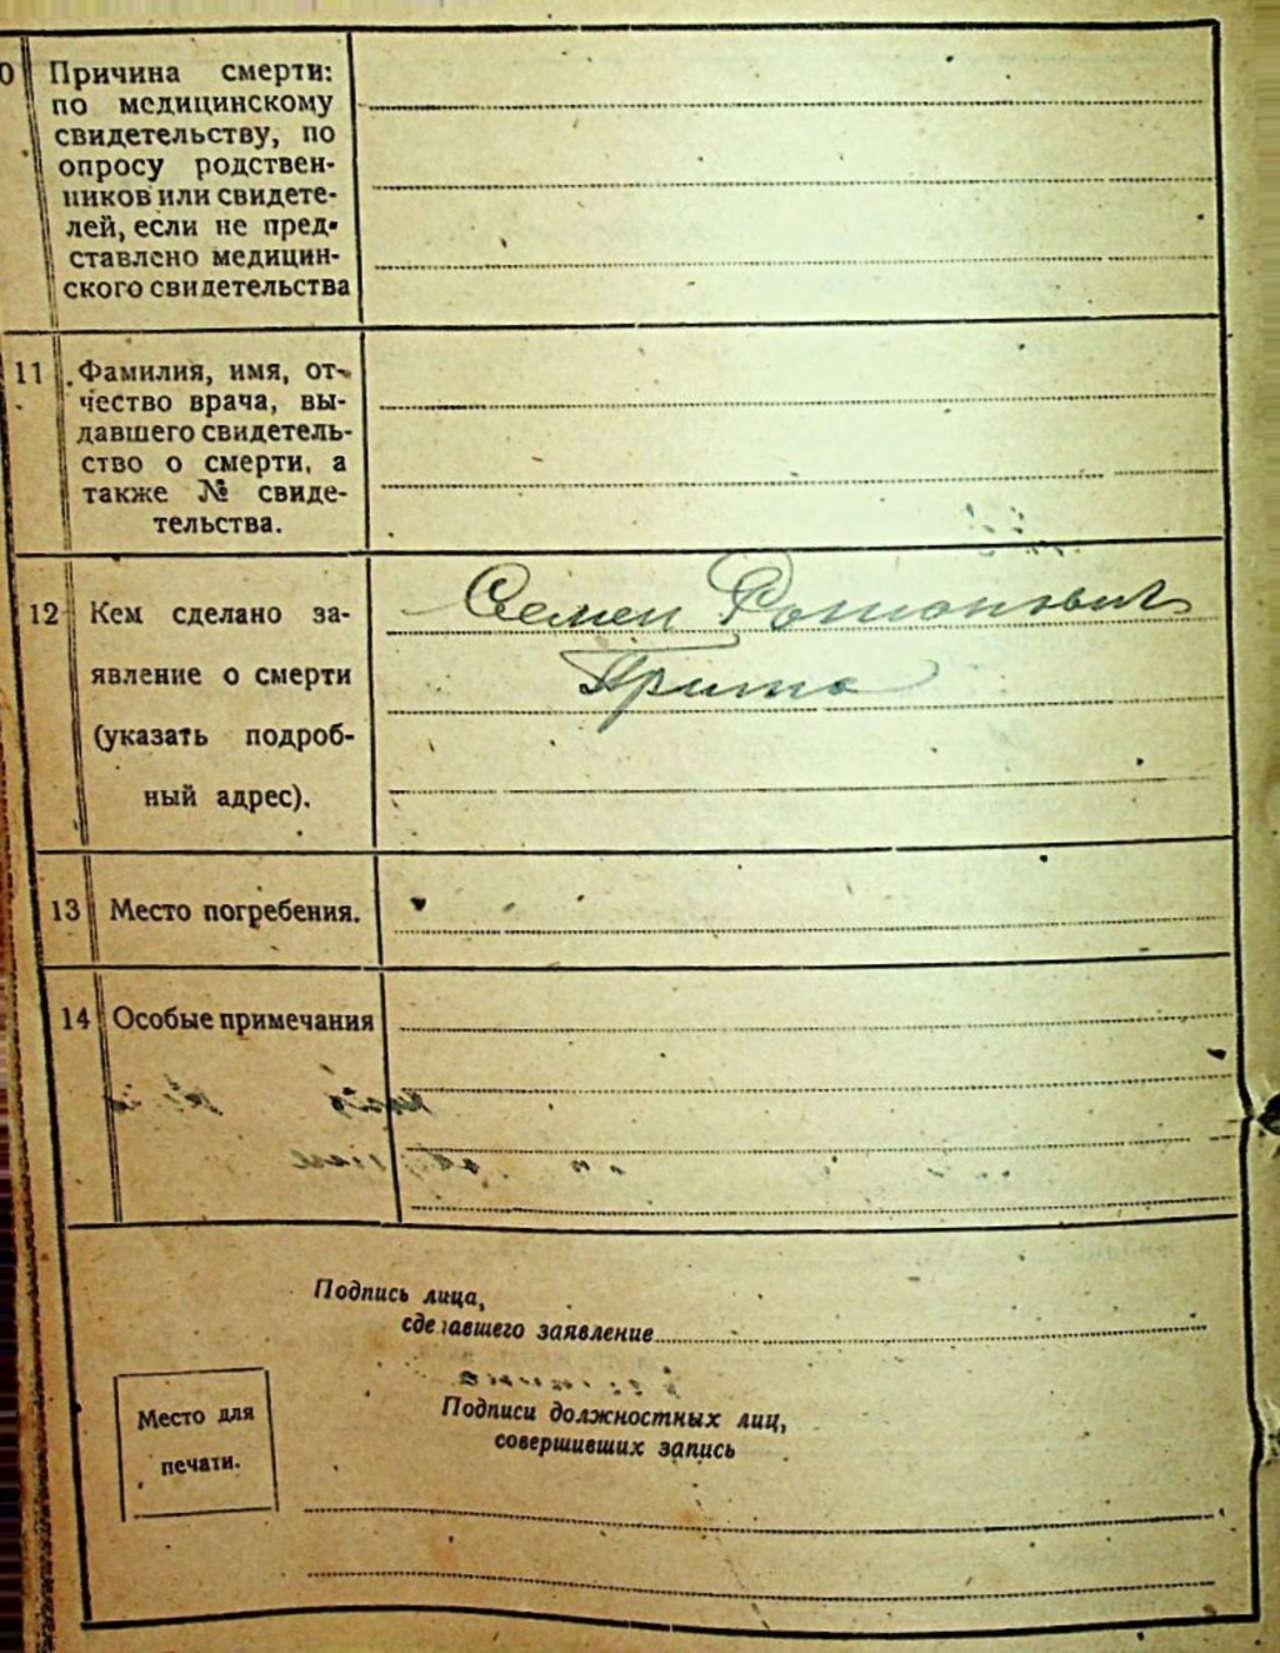 0 Причина смерти:
по медицинскому
свидетельству, по
опросу родствен-
ников или свидете-
лей, если не пред-
ставлено медицин-
ского свидетельства
11 Фамилия, имя, от-
чество врача, вы-
давшего свидетель-
ство о смерти, а
также № свиде-
тельства.
12 Кем сделано за-
явление о смерти
(указать подроб-
ный адрес).
Семен
13 Место погребения.
14 Особые примечания
Подпись лица,
сделавшего заявление
Подписи должностных лиц,
совершивших запись
Место для
печати.